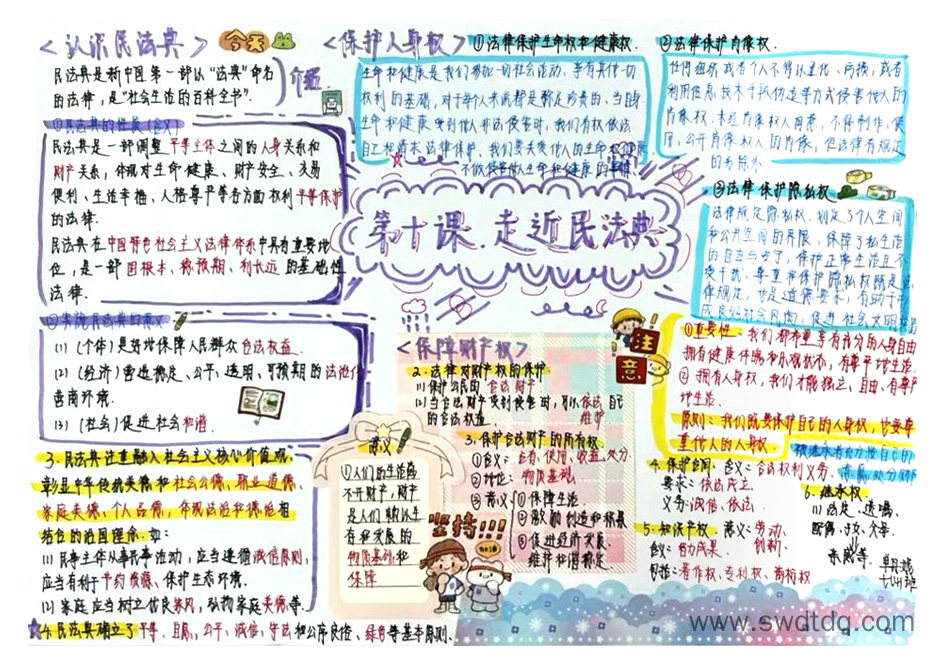 <认识民法典>
今天
民法典是新中国第一部以“法典”命名
的法律，是“社会生活的百科全书”.
介绍
①民法典的性质(含义)
民法典是一部调整平等主体之间的人身关系和
财产关系，体现对生命健康、财产安全、交易
便利、生活幸福、人格尊严等各方面权利平等保护
的法律.
民法典在中国特色社会主义法律体系中具有重要地
位，是一部固根本、稳预期、利长远的基础性
法律.
②实施民法典的意义
(1)(个体)更好地保障人民群众合法权益.
(2)(经济)营造稳定、公平、透明、可预期的法治化
营商环境.
(3)(社会)促进社会和谐
3.民法典注重融入社会主义核心价值观，
彰显中华传统美德和社会公德、职业道德、
家庭美德、个人品德，体现法治和德治相
结合的治国理念.如
(1)民事主体从事民事活动，应当遵循诚信原则，
应当有利于节约资源、保护生态环境.
(2)家庭应当树立优良家风，弘扬家庭美德等.
4.民法典确立了平等、自愿、公平、诚信、守法和公序良俗、绿色等基本原则.
第十课.走近民法典
<保护人身权>
①法律保护生命权和健康权.
生命和健康是我们参加一切社会活动、享有其他一切
权利的基础，对于每个人来说都是最宝贵的、当自身
生命和健康受到他人非法侵害时，我们有权依法
自卫和请求法律保护、我们要关爱他人的生命和健康
不做侵害他人生命和健康的事情.
②法律保护肖像权.
任何组织或者个人不得以丑化、污损，或者
利用信息技术手段伪造等方式侵害他人的
肖像权.未经肖像权人同意，不得制作、使
用、公开肖像权人的肖像，但法律有规定
的除外
③法律保护隐私权
法律规定隐私权，划定了个人空间
和公共空间的界限，保障了私生活
的自由与安宁，保护正常生活且不
受干扰、尊重和保护隐私权既是法
律规定，也是道德要求，有助于形
成良好社会风尚，促进社会文明
注
意
①重要性：我们都希望享有充分的人身自由
拥有健康体魄
有尊严地生活
②拥有人身权，我们才能独立、自由、有尊严
地生活.
原则：我们既要保护自己的人身权，也要尊
重他人的人身权
<保障财产权>
2.法律对财产权的保护
(1)保护公民的合法财产
(2)当合法财产受到侵害时，可以依法
维护
自己
的合法权益
3.保护合法财产的所有权
①含义：占有、使用、收益、处分
②地位：物质基础
③意义
①保障生活
②激励创造和积累
③促进经济发展、
维护和谐稳定
意义
①人们的生活离
不开财产，财产
是人们赖以生
存和发展的
物质基础和
保障
坚持!!!
4.保护合同：含义：合法权利义务.
要求：依法成立
义务：诚信、依法.
5.知识产权.意义：劳动、
创新、
含义：智力成果.
包括：著作权、专利权、商标权
6.继承权
(1)法定、遗嘱、
配偶、子女、父母.
www.swdtdq.com